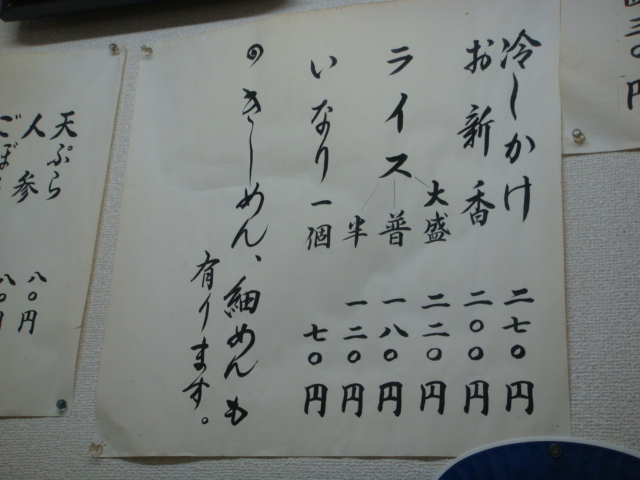 三〇円
冷しかけ 二七〇円
お新香 二〇〇円
ライス 大盛 二二〇円
普 一八〇円
半 一二〇円
いなり一個 七〇円
◎きしめん、細めんも
有ります。
天ぷら
人参 八〇円
ごぼう 八〇円